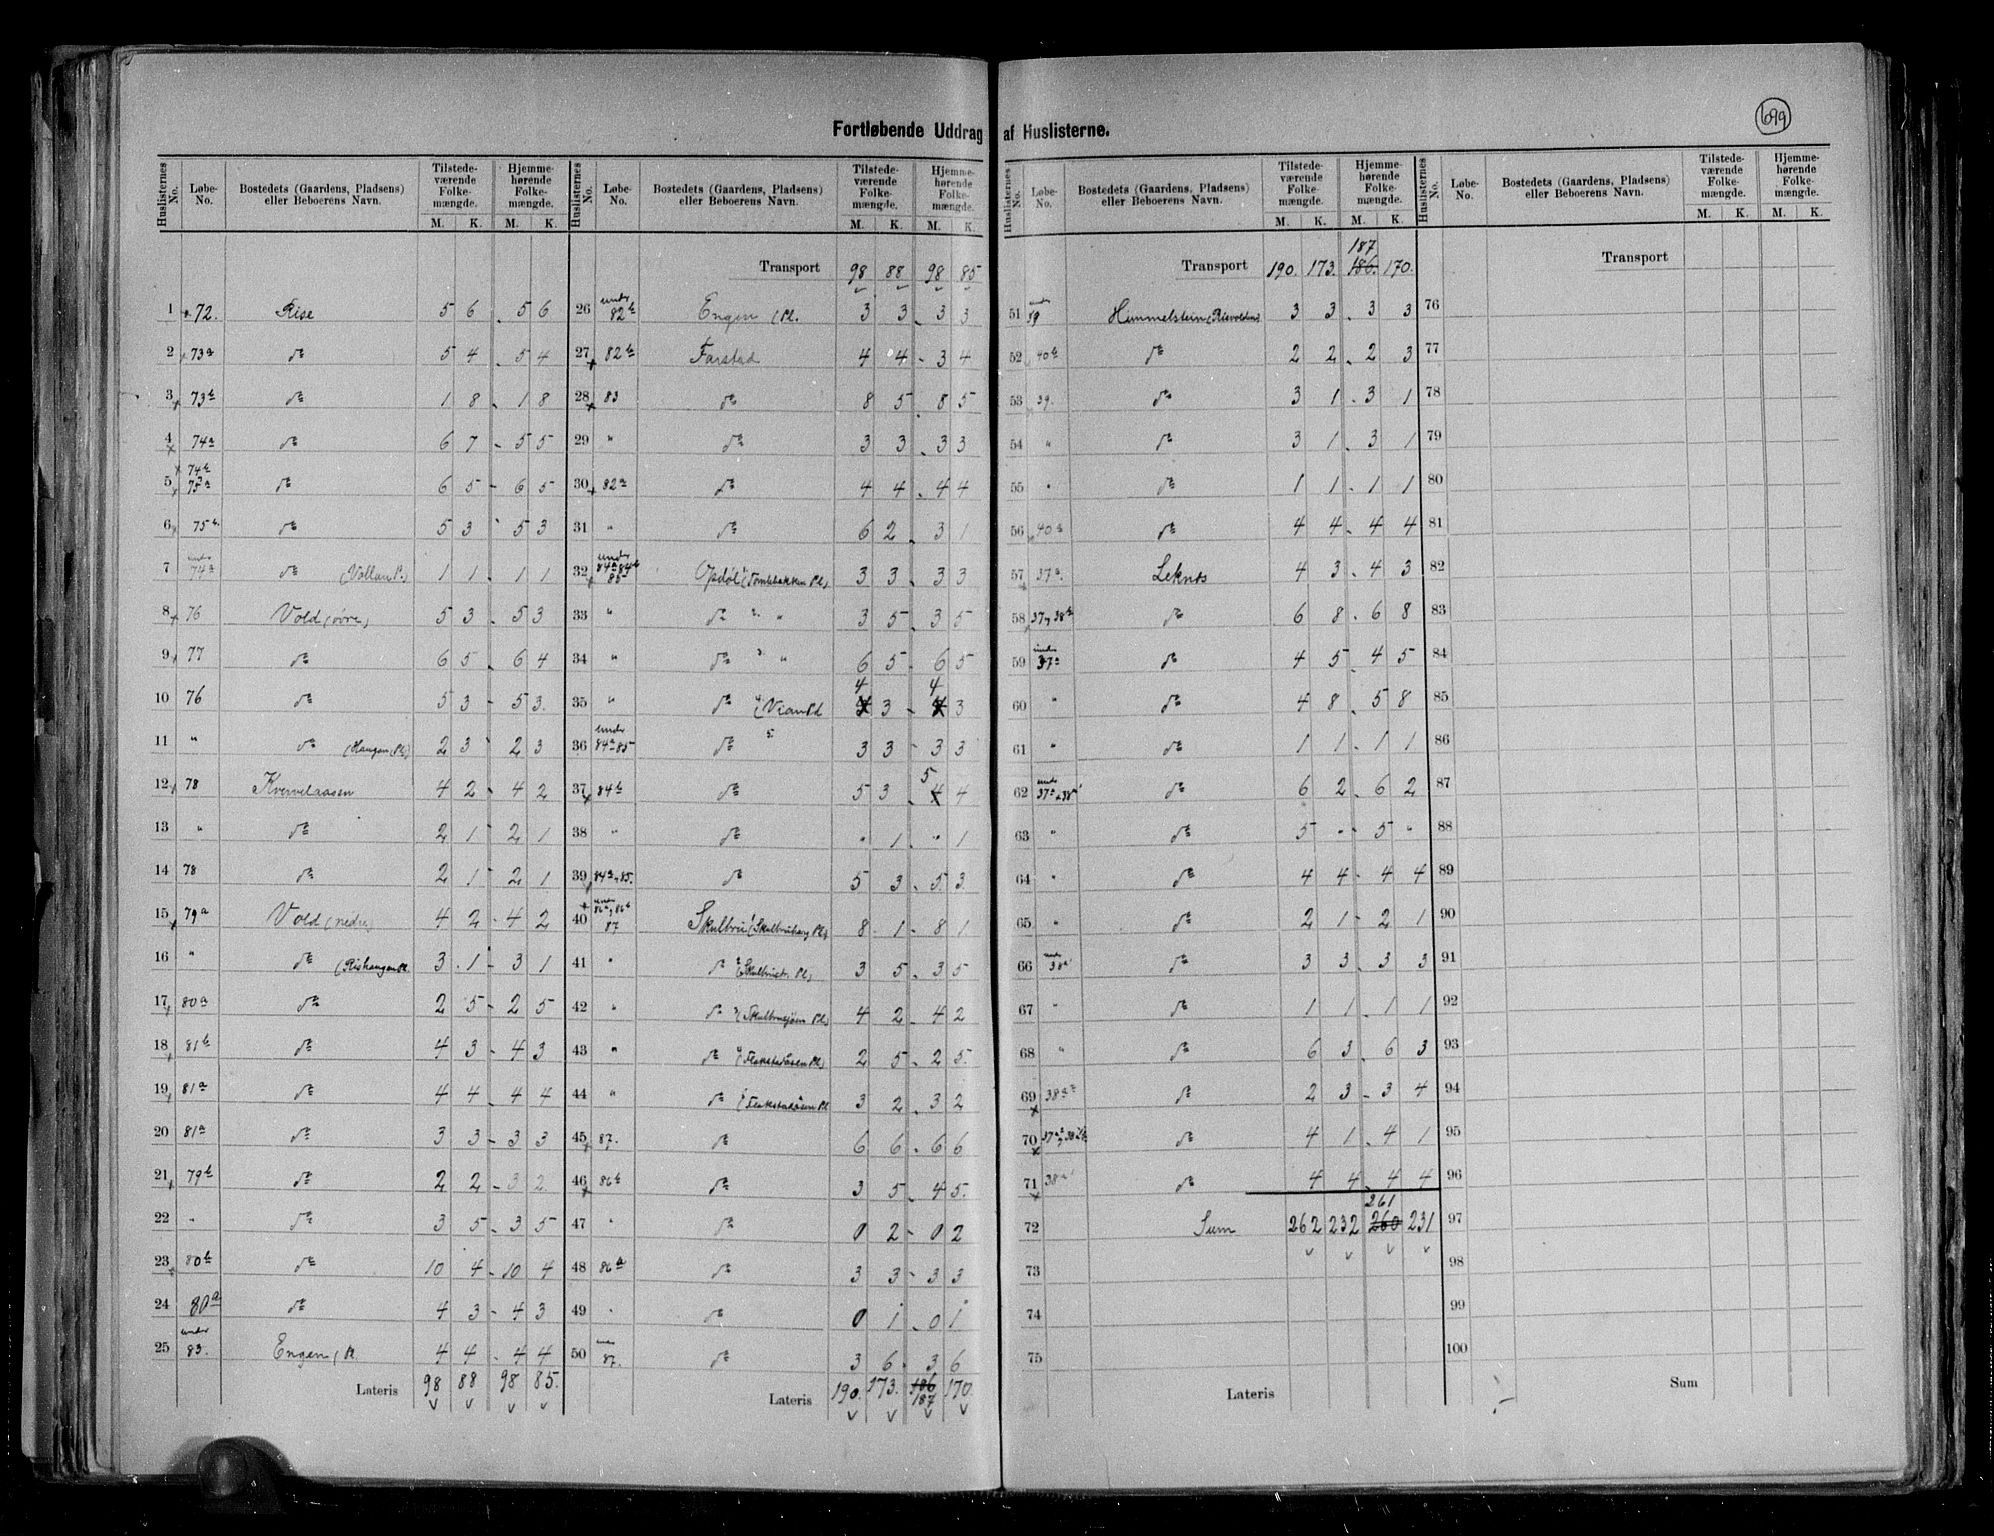 699
Fortløbende Uddrag af Huslisterne.
Huslisternes No. | Løbe-No. | Bostedets (Gaardens, Pladsens) eller Beboerens Navn. | Tilstedeværende Folkemængde. M. K. | Hjemmehørende Folkemængde. M. K.
1 72. Rise 5 6 5 6
2 73a do 5 4 5 4
3 73b do 1 8 1 8
4 74a do 6 7 5 5
5 74b 75a do 6 5 6 5
6 75b. do 5 3 5 3
7 under 74a do (Vollan Pl.) 1 1 1 1
8 76 Vold (øvre) 5 3 5 3
9 77 do 6 5 6 4
10 76 do 5 3 5 3.
11 " do (Haugen Pl.) 2 3 2 3
12 78 Kvervelaasen 4 2 4 2
13 " do 2 1 2 1
14 78 do 2 1 2 1
15 79a Vold (nedre) 4 2 4 2
16 " do (Rishaugen Pl. 3 1 3 1
17 80a do 2 5 2 5
18 81b do 4 3 4 3
19 81a do 4 4 4 4
20 81a do 3 3 3 3
21 79b do 2 2 3 2
22 " do 3 5 3 5
23 80b do 10 4 10 4
24 80a do 4 3 4 3
25 under 83. Engen (Pl. 4 4 4 4
Lateris 98 88 98 85.
Transport 98 88 98 85
26 under 82b Engen (Pl. 3 3 3 3
27 82b Farstad 4 4 3 4
28 83 do 8 5 8 5
29 " do 3 3 3 3
30 82a do 4 4 4 4
31 " do 6 2 3 1
32 under 84a 84b 85 Opdøl (Tomlebakken Pl.) 3 3 3 3
33 " do " " 3 5 3 5
34 " do " " 6 5 6 5
35 " do 4 3 4 3
36 under 84a 85 do 3 3 3 3
37 84b do 5 3 5 4
38 " do " 1 " 1
39 84a, 85. do 5 3 5 3.
40 under 86a, 86b 87 Skulbru (Skulbruhaug Pl.) 8 1 8 1
41 " do 3 5 3 5
42 " do (Skulbrusjøen Pl.) 4 2 4 2
43 " do 2 5 2 5.
44 " do 3 2 3 2
45 87. do 6 6 6 6
46 86b do 3 5 4 5.
47 " do 0 2 0 2
48 86a do 3 3 3 3
49 " do 0 1 0 1
50 under 87. do 3 6 3 6
Lateris 190. 173. 186 187 170.
Transport 190. 173. 187 186. 170.
51 under 39 Himmelstein (Risvolden) 3 3 3 3
52 40b do 2 2 2 3
53 39. do 3 1 3 1
54 " do 3 1 3 1
55 " do 1 1 1 1
56 40a do 4 4 4 4
57 37a. Leknes 4 3 4 3
58 37, 38b do 6 8 6 8
59 under 37a do 4 5 4 5
60 " do 4 8 5 8
61 " do 1 1 1 1
62 under 37a, 38a do 6 2 6 2
63 " do 5 " 5 "
64 " do 4 4 4 4
65 " do 2 1 2 1
66 under 38a do 3 3 3 3
67 " do 1 1 1 1
68 " do 6 3 6 3
69 38a do 2 3 3 4
70 do 4 1 4 1
71 38a do 4 4 4 4
72 Sum 262 232 261 260 231
73
74
75
Lateris
Transport
76
77
78
79
80
81
82
83
84
85
86
87
88
89
90
91
92
93
94
95
96
97
98
99
100
Sum